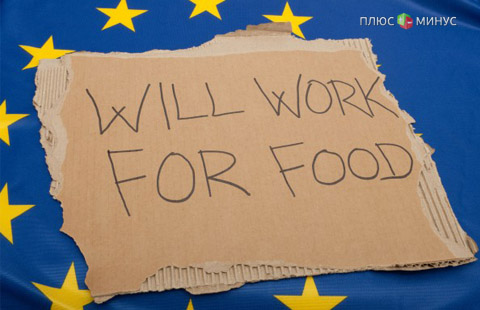 ПЛЮС МИНУС
WILL WORK
FOR FOOD